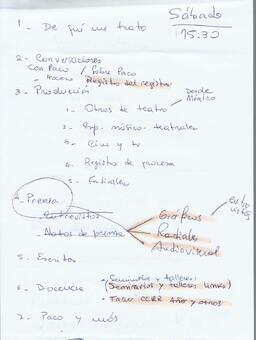 Sábado
15:30
1- De qué me trato
2- Conversaciones
con Paco / Sobre Paco
Proceso Registro del registro
3- Producción
desde México
1- Obras de teatro
2- Exp. músico-teatrales
3- Cine y tv
4- Registro de procesos
5- Festivales
4- Prensa
Entrevistas
Notas de prensa
Gráficas
Radiales
Audiovisual
entrevistas
5- Escritos
6- Docencia
Seminarios y talleres
(Seminarios y talleres UNAM)
Taller CCRR Año y otros
7- Paco y más